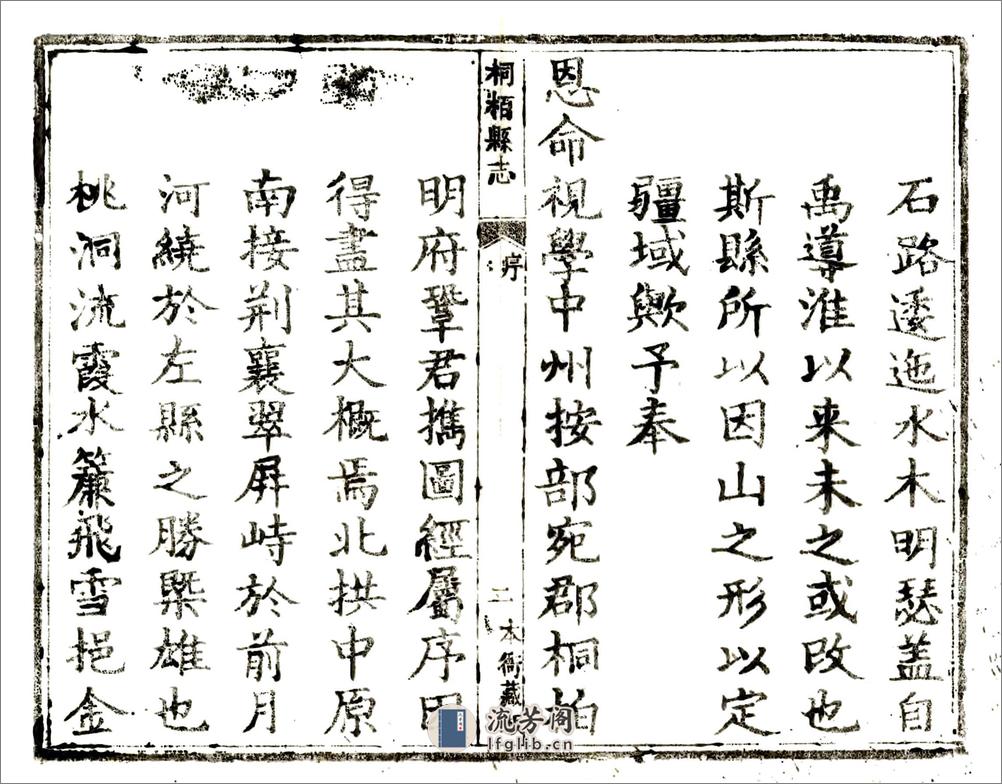 石路逶迤水木明瑟盖自
禹導淮以来未之或改也
斯縣所以因山之形以定
疆域歟予奉
恩命視學中州按部宛郡桐柏
桐栢縣志
序
二
本衙藏
明府鞏君擕圖經屬序因
得盡其大概焉北拱中原
南接荆襄翠屏峙於前月
河繞於左縣之勝槩雄也
桃洞流霞水簾飛雪挹金
流芳阁
lfglib.cn